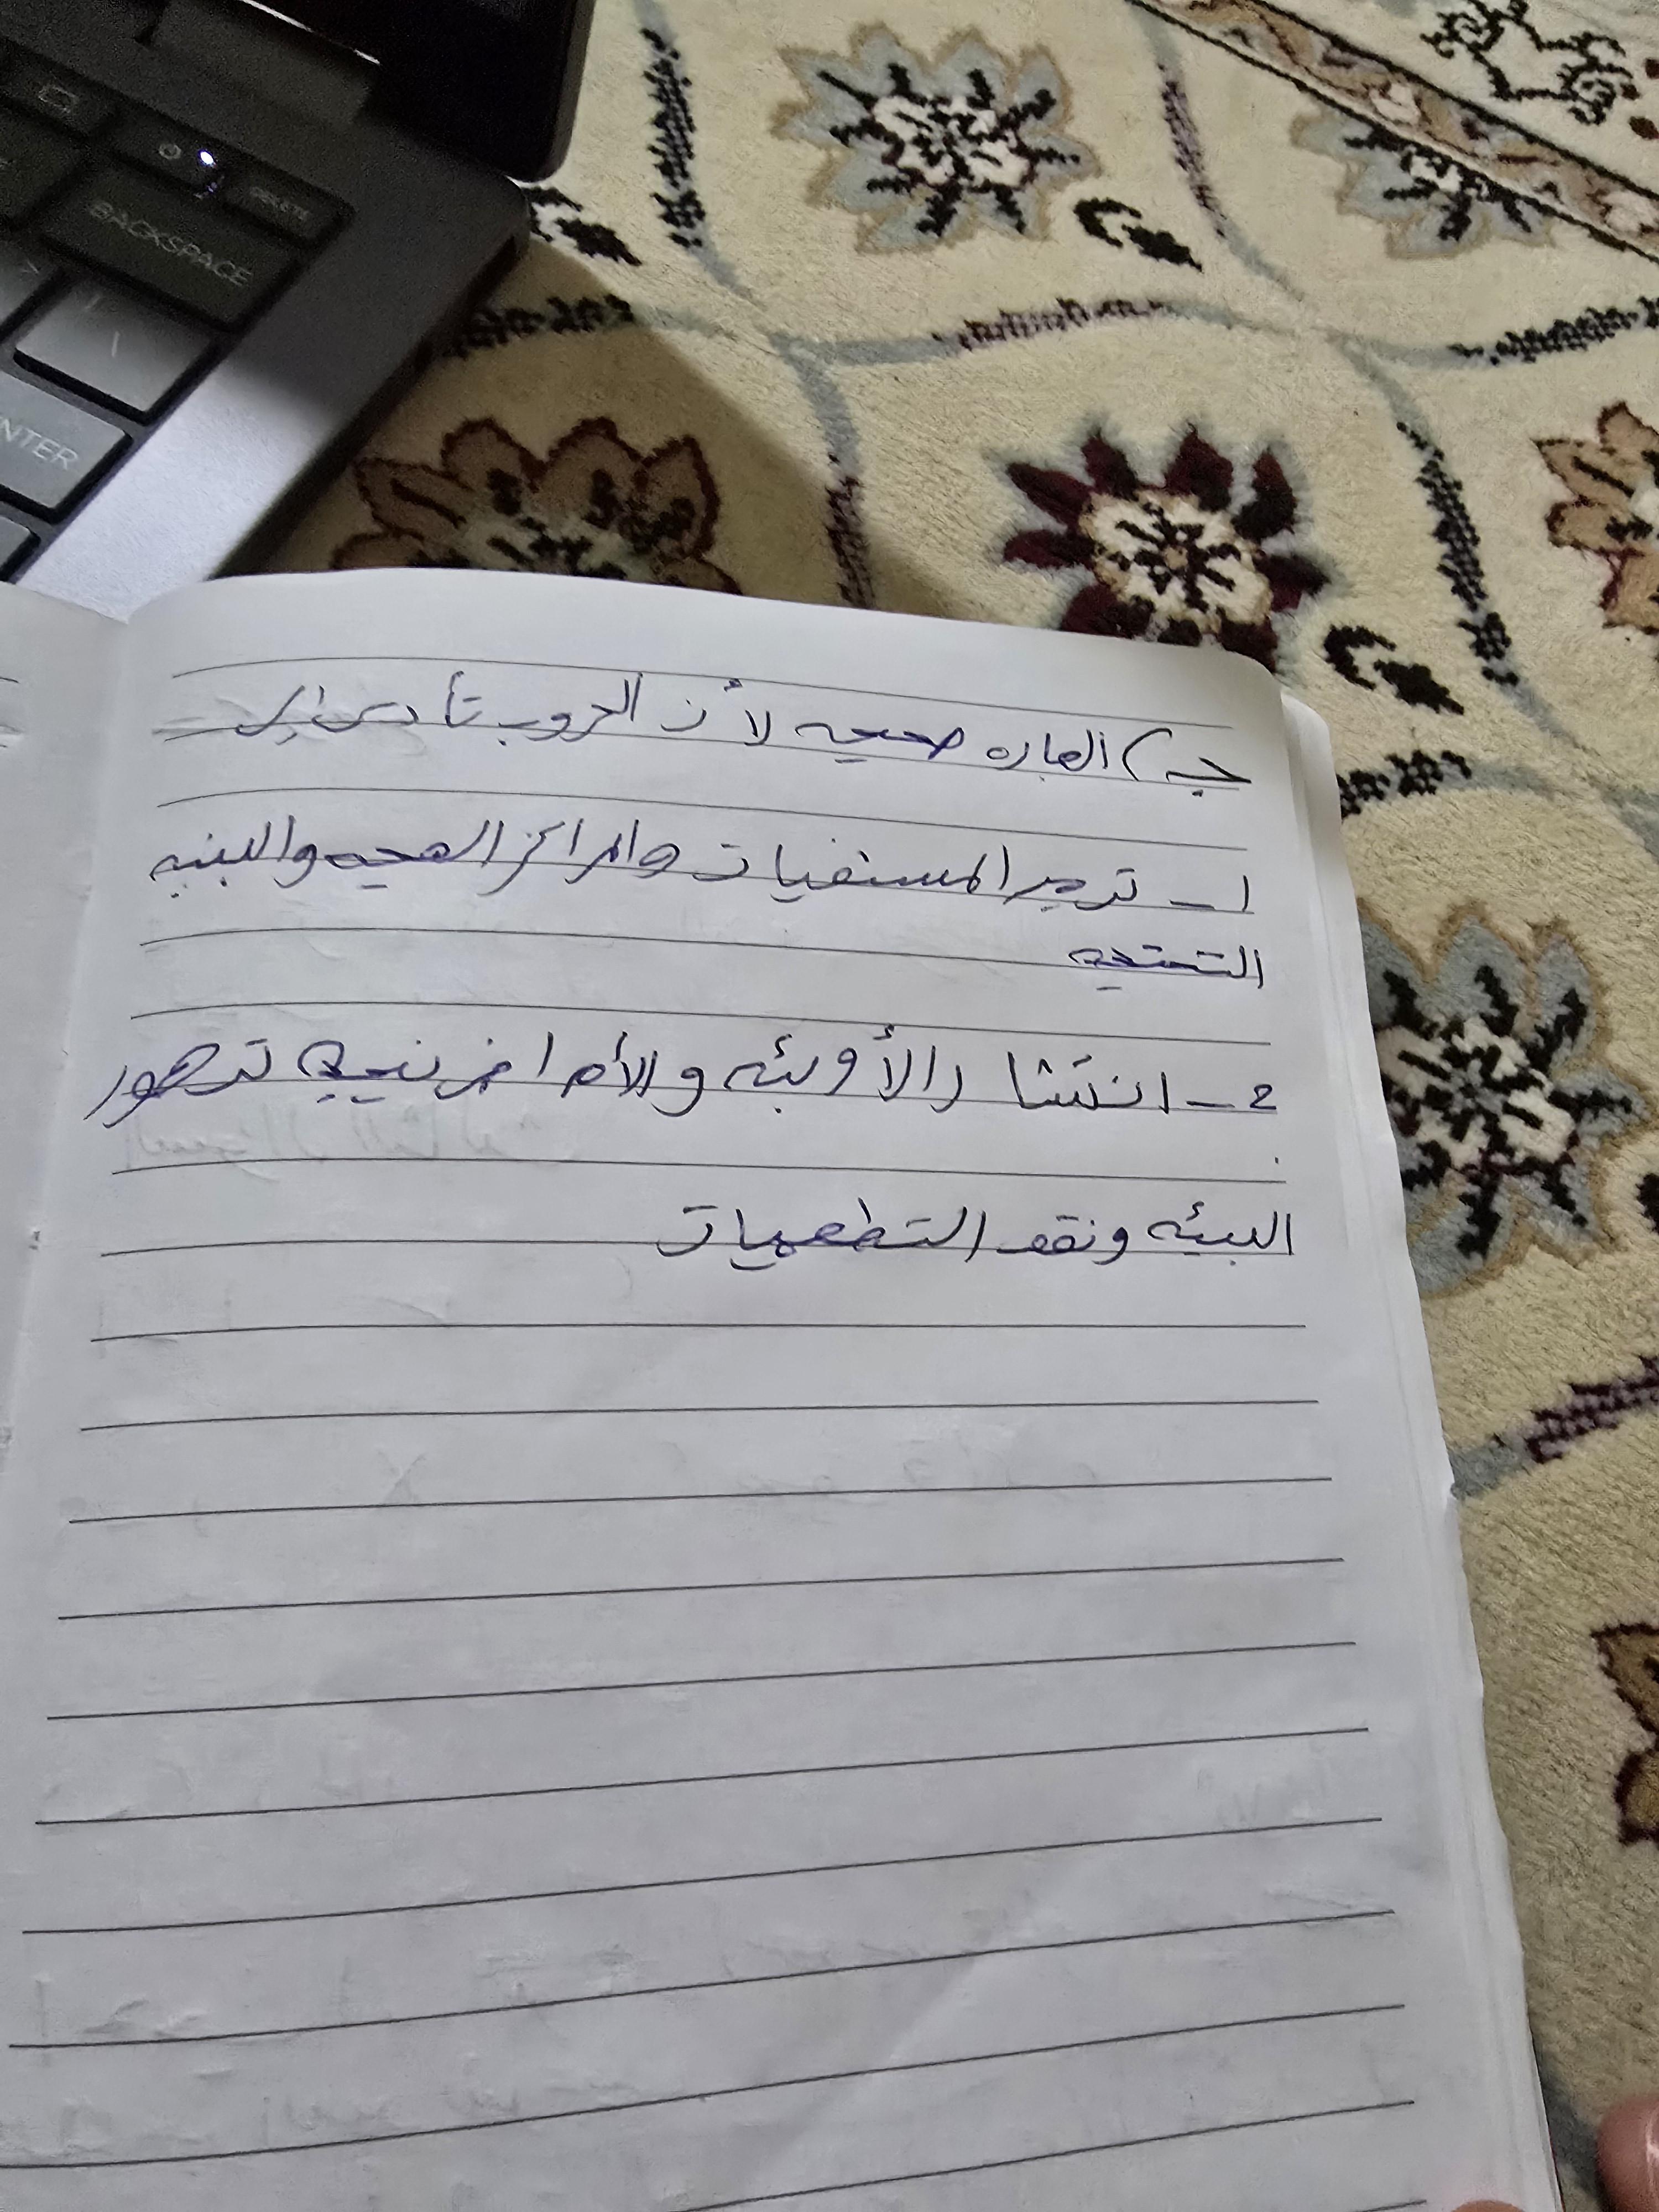 BACKSPACE
DELETE
ENTER
جـ) العباره صحيحه لأن الحروب تأدي إلى
1- تدمير المستشفيات والمراكز الصحيه والبنيه
التحتيه
2- انتشار الأوبئه والأمراض نتيجه تدهور
البيئه ونقص التطعيمات